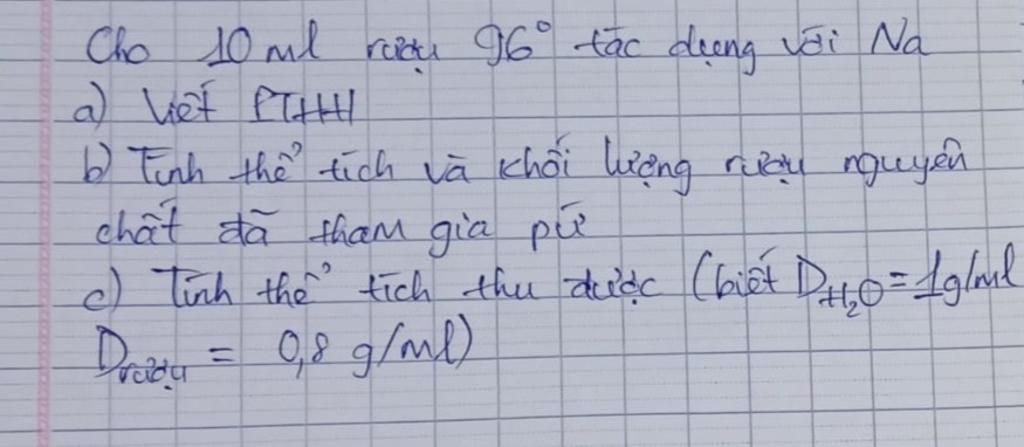 Cho 10 ml rượu 96° tác dụng với Na
a) Viết PTHH
b) Tính thể tích và khối lượng rượu nguyên
chất đã tham gia pứ
c) Tính thể tích thu được (biết D_H₂O = 1g/ml
D_rượu = 0,8 g/ml)